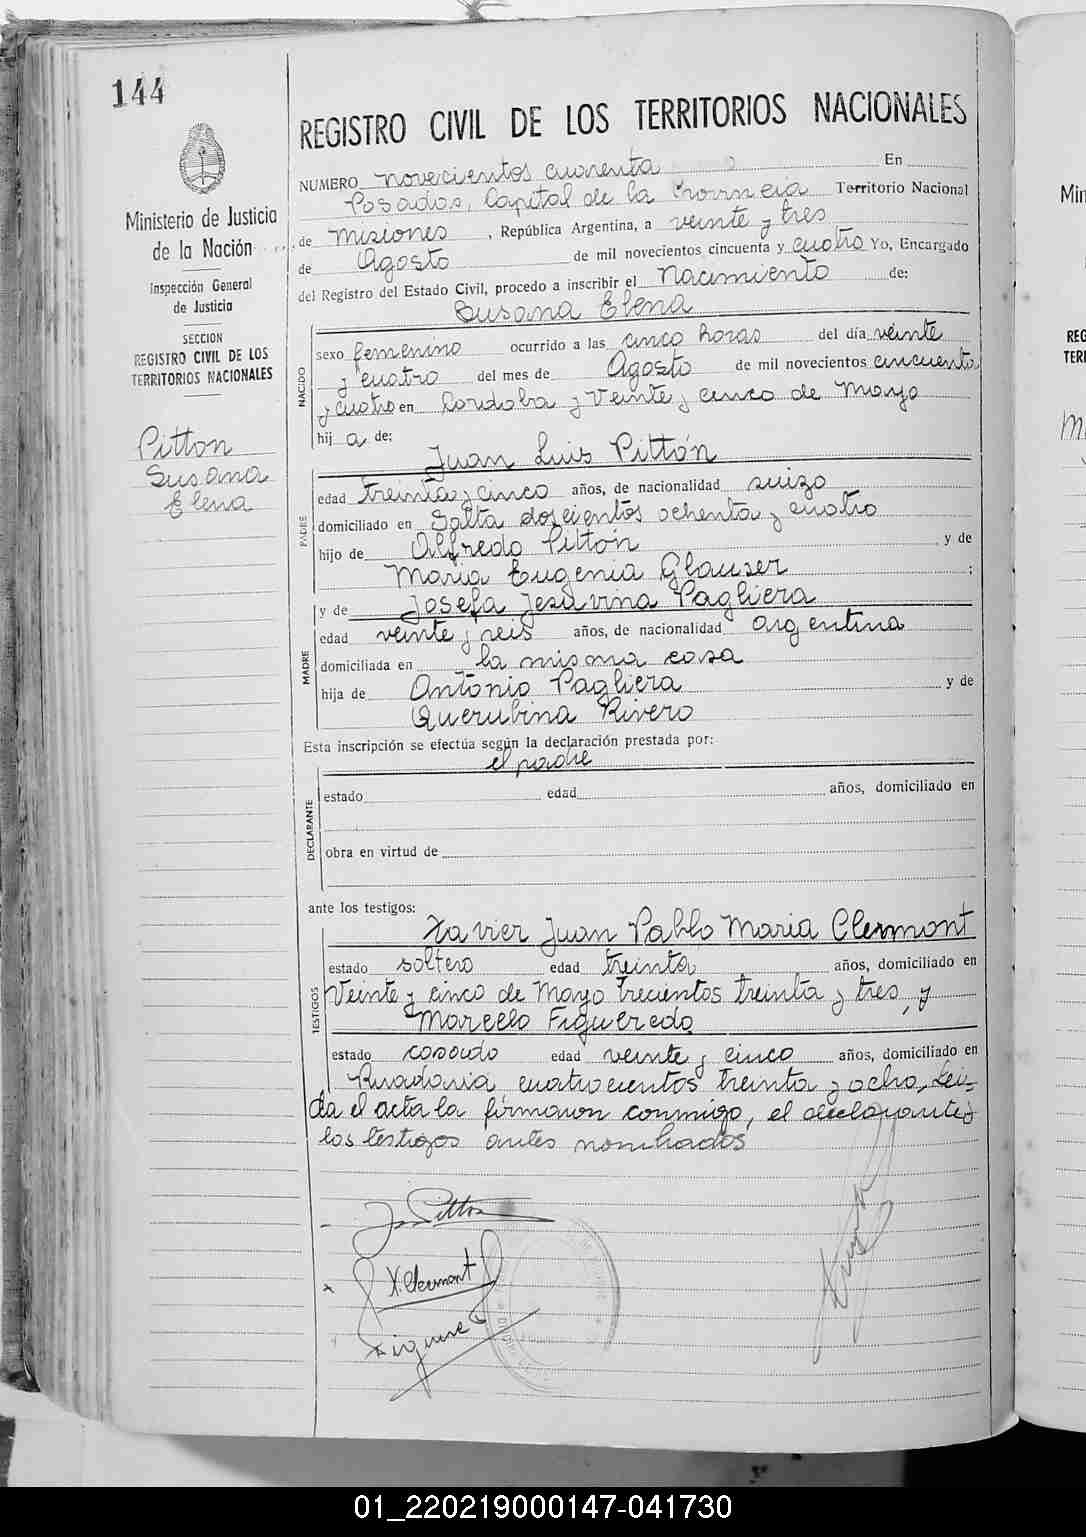 144
Ministerio de Justicia
de la Nación
Inspección General
de Justicia
SECCION
REGISTRO CIVIL DE LOS
TERRITORIOS NACIONALES
Pitton
Susana
Elena
REGISTRO CIVIL DE LOS TERRITORIOS NACIONALES
NUMERO novecientos cuarenta En
Posadas, Capital de la Provincia Territorio Nacional
de Misiones, República Argentina, a veinte y tres
de Agosto de mil novecientos cincuenta y cuatro Yo, Encargado
del Registro del Estado Civil, procedo a inscribir el Nacimiento de:
Susana Elena
NACIDO
sexo femenino ocurrido a las cinco horas del día veinte
y cuatro del mes de Agosto de mil novecientos cincuenta
y cuatro en Cordoba y Veinte y cinco de Mayo
hij a de:
Juan Luis Pittón
PADRE
edad treinta y cinco años, de nacionalidad suizo
domiciliado en Salta doscientos ochenta y cuatro
hijo de Alfredo Pittón y de
Maria Eugenia Glauser;
y de Josefa Pagliera
MADRE
edad veinte y seis años, de nacionalidad argentina
domiciliada en la misma casa
hija de Antonio Pagliera y de
Querubina Rivero
Esta inscripción se efectúa según la declaración prestada por:
el padre
DECLARANTE
estado edad años, domiciliado en
obra en virtud de
ante los testigos:
Xavier Juan Pablo Maria Clermont
TESTIGOS
estado soltero edad treinta años, domiciliado en
Veinte y cinco de Mayo trecientos treinta y tres, y
Marcelo Figueredo
estado casado edad veinte y cinco años, domiciliado en
Rivadavia cuatrocientos treinta y ocho, Lei-
da el acta la firmaron conmigo, el declarante y
los testigos antes nombrados
X. Clermont
Min
REG
TER
01_220219000147-041730